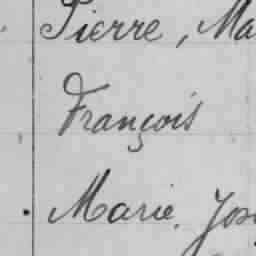 Pierre, Ma
François
Marie. Jos